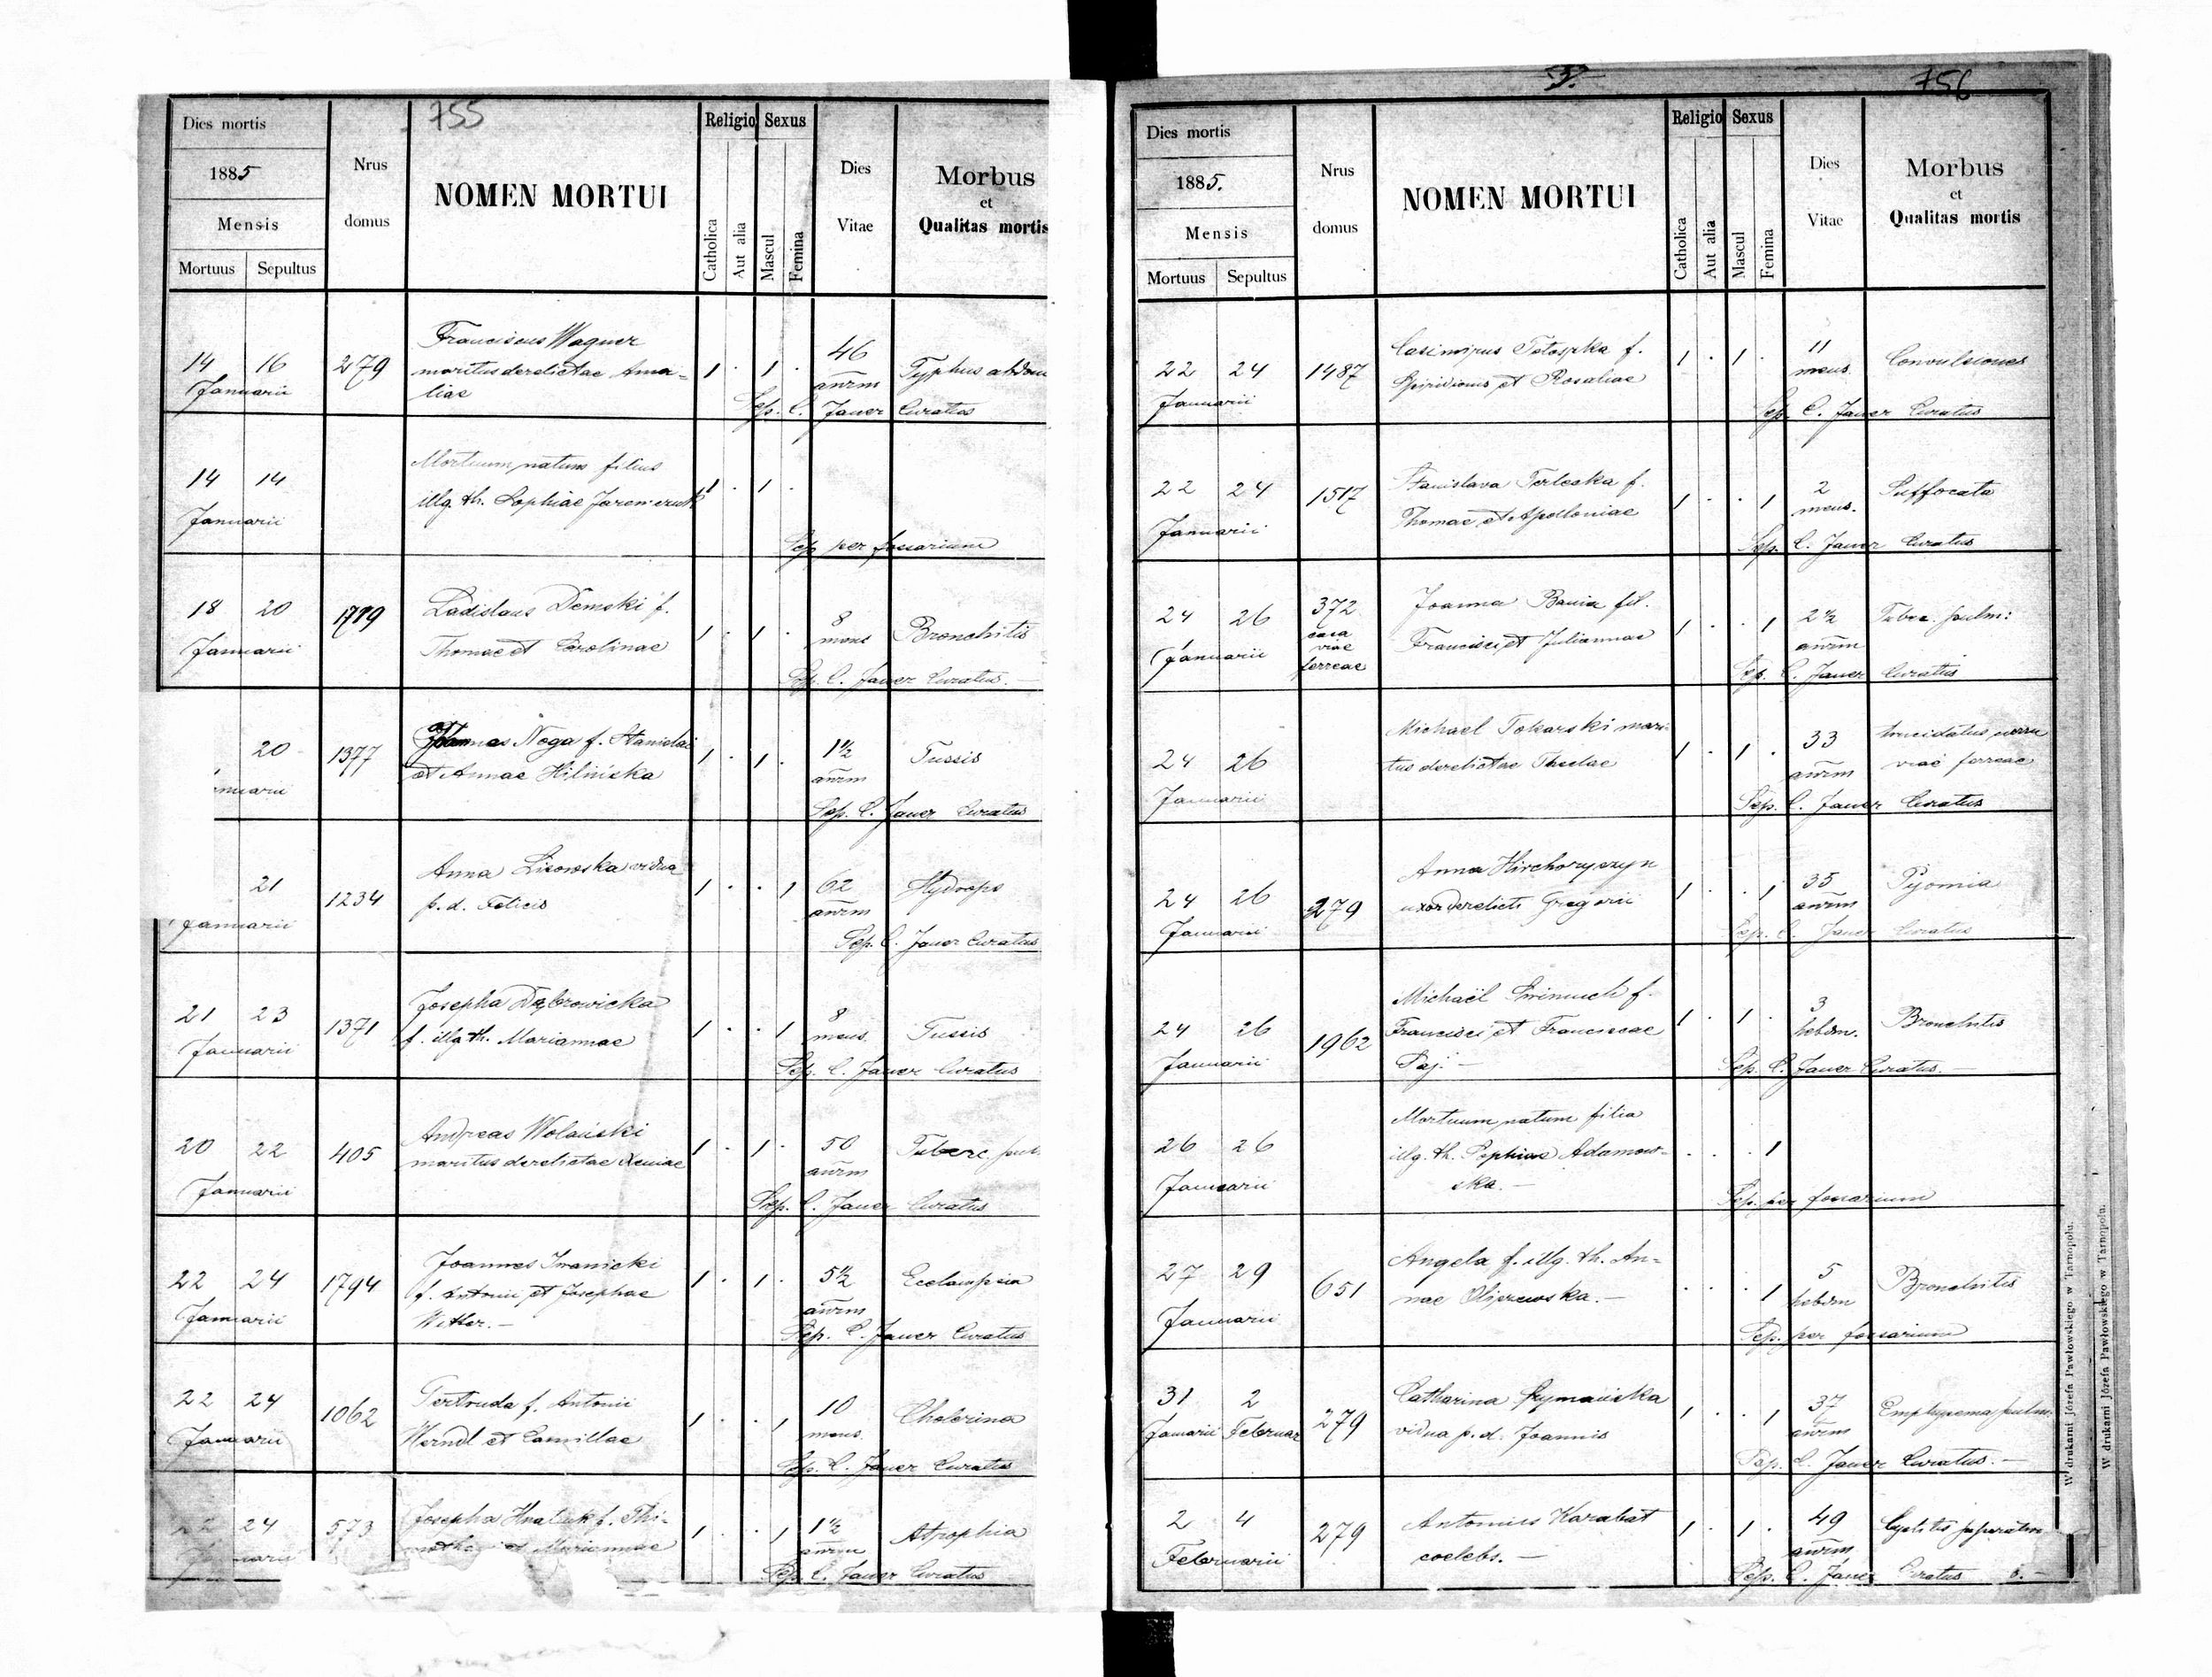 755
Dies mortis
1885
Mensis
Mortuus Sepultus
Nrus domus
NOMEN MORTUI
Religio Sexus
Catholica Aut alia Mascul Femina
Dies Vitae
Morbus
et
Qualitas mortis
14 16 279 Franciscus Wagner 46
maritus derelictae Ama= 1 · 1 · añrm Typhus abdom
Januarii liae
Sep. C. Jauer Curatus
14 14 Mortuum natum filius
illg. th. Sophiae 1 · 1 ·
Januarii
Sep per fossarium
18 20 1719 Ladislaus Demski f. 8
Januarii Thomae et Carolinae 1 · 1 · mens Bronchitis
Sep. C. Jauer Curatus. —
20 1377 Joannes Noga f. Stanislai 1 · 1 · 1½ Tussis
nuarii et Annae Hilińska añrm
Sep. C. Jauer Curatus
21 1234 Anna Lisowska vidua 1 · · 1 62 Hydrops
Januarii p. d. Felicis añrm
Sep. C. Jauer Curatus
21 23 1371 Josepha Dąbrowicka 8
Januarii f. illg th. Mariannae 1 · · 1 mens. Tussis
Sep. C. Jauer Curatus
20 22 405 Andreas Wolański 1 · 1 · 50 Tuberc pul
Januarii maritus derelictae Xeniae añrm
Sep. C. Jauer Curatus
22 24 1794 Joannes Iwanicki 1 · 1 · 5½ Eclampsia
Januarii f. Antonii et Josephae añrm
Wither. —
Sep. C. Jauer Curatus
22 24 1062 Gertruda f. Antonii 1 · · 1 10 Cholerina
Januarii Herndl et Camillae mens.
Sep. C. Jauer Curatus
22 24 573 Josepha Hnatiuk f. Thi- 1 · · 1 1½ Atrophia
Januarii et Mariannae añrm
Sep. C. Jauer Curatus
3.
756
Dies mortis
1885.
Mensis
Mortuus Sepultus
Nrus domus
NOMEN MORTUI
Religio Sexus
Catholica Aut alia Mascul Femina
Dies Vitae
Morbus
et
Qualitas mortis
22 24 1487 Casimirus f. 1 · 1 · 11 Convulsiones
Januarii Spiridionis et Rosaliae mens.
Sep. C. Jauer Curatus
22 24 1517 Stanislava Terlecka f. 1 · · 1 2 Suffocata
Januarii Thomae et Apolloniae mens.
Sep. C. Jauer Curatus
24 26 372 Joanna Bania fil. 1 · · 1 2½ Tuberc. pulm:
Januarii casa viae ferreae Francisci et Juliannae añrm
Sep. C. Jauer Curatus
24 26 Michael Tokarski mari- 1 · 1 · 33 trucidatus curru
Januarii tus derelictae Theclae añrm viae ferreae
Sep. C. Jauer Curatus
24 26 279 Anna 1 · · 1 35 Pyomia
Januarii uxor derelicti Gregorii añrm
Sep. C. Jauer Curatus
24 26 1962 Michaël f. 1 · 1 · 3 Bronchitis
Januarii Francisci et Franciscae hebdm.
Paj. —
Sep. C. Jauer Curatus. —
26 26 Mortuum natum filia
illg. th. Sophiae Adamow- · · · 1
Januarii ska. —
Sep. per fossarium
27 29 651 Angela f. illg. th. An= · · · 1 5 Bronchitis
Januarii nae Olszewska. — hebdm
Sep. per fossarium
31 2 279 Catharina Szymańska 1 · · 1 37 Emphysema pulm.
Januarii Februar vidua p. d. Joannis añrm
Sep. C. Jauer Curatus. —
2 4 279 Antonius Karabat 1 · 1 · 49 Cystitis
Februarii coelebs. — añrm
Sep. C. Jauer Curatus
W drukarni Józefa Pawłowskiego w Tarnopolu.
W drukarni Józefa Pawłowskiego w Tarnopolu.